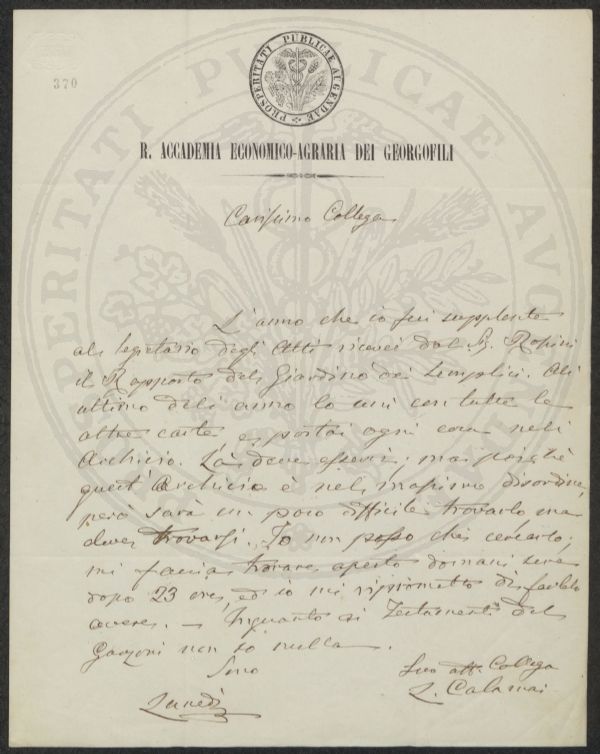 370
PROSPERITATI PUBLICAE AUGENDAE
R. ACCADEMIA ECONOMICO-AGRARIA DEI GEORGOFILI
Carissimo Collega
L'anno che io fui supplente
al Segretario degli Atti ricevei dal Sig.
il Rapporto del Giardino dei Semplici. All'
ultimo dell'anno lo unii con tutte le
altre carte, e portai ogni cosa nell'
Archivio. Là deve esservi; ma poichè
quest'Archivio è nel massimo disordine,
però sarà un poco difficile trovarlo, ma
deve trovarsi. Io non posso che cercarlo;
mi faccia trovare aperto domani sera
dopo 23 ore, ed io mi riprometto di farlo
avere. — Inquanto ai Testamenti del
Garzoni non so nulla.
Suo att. Collega
L. Calamai
Lunedì